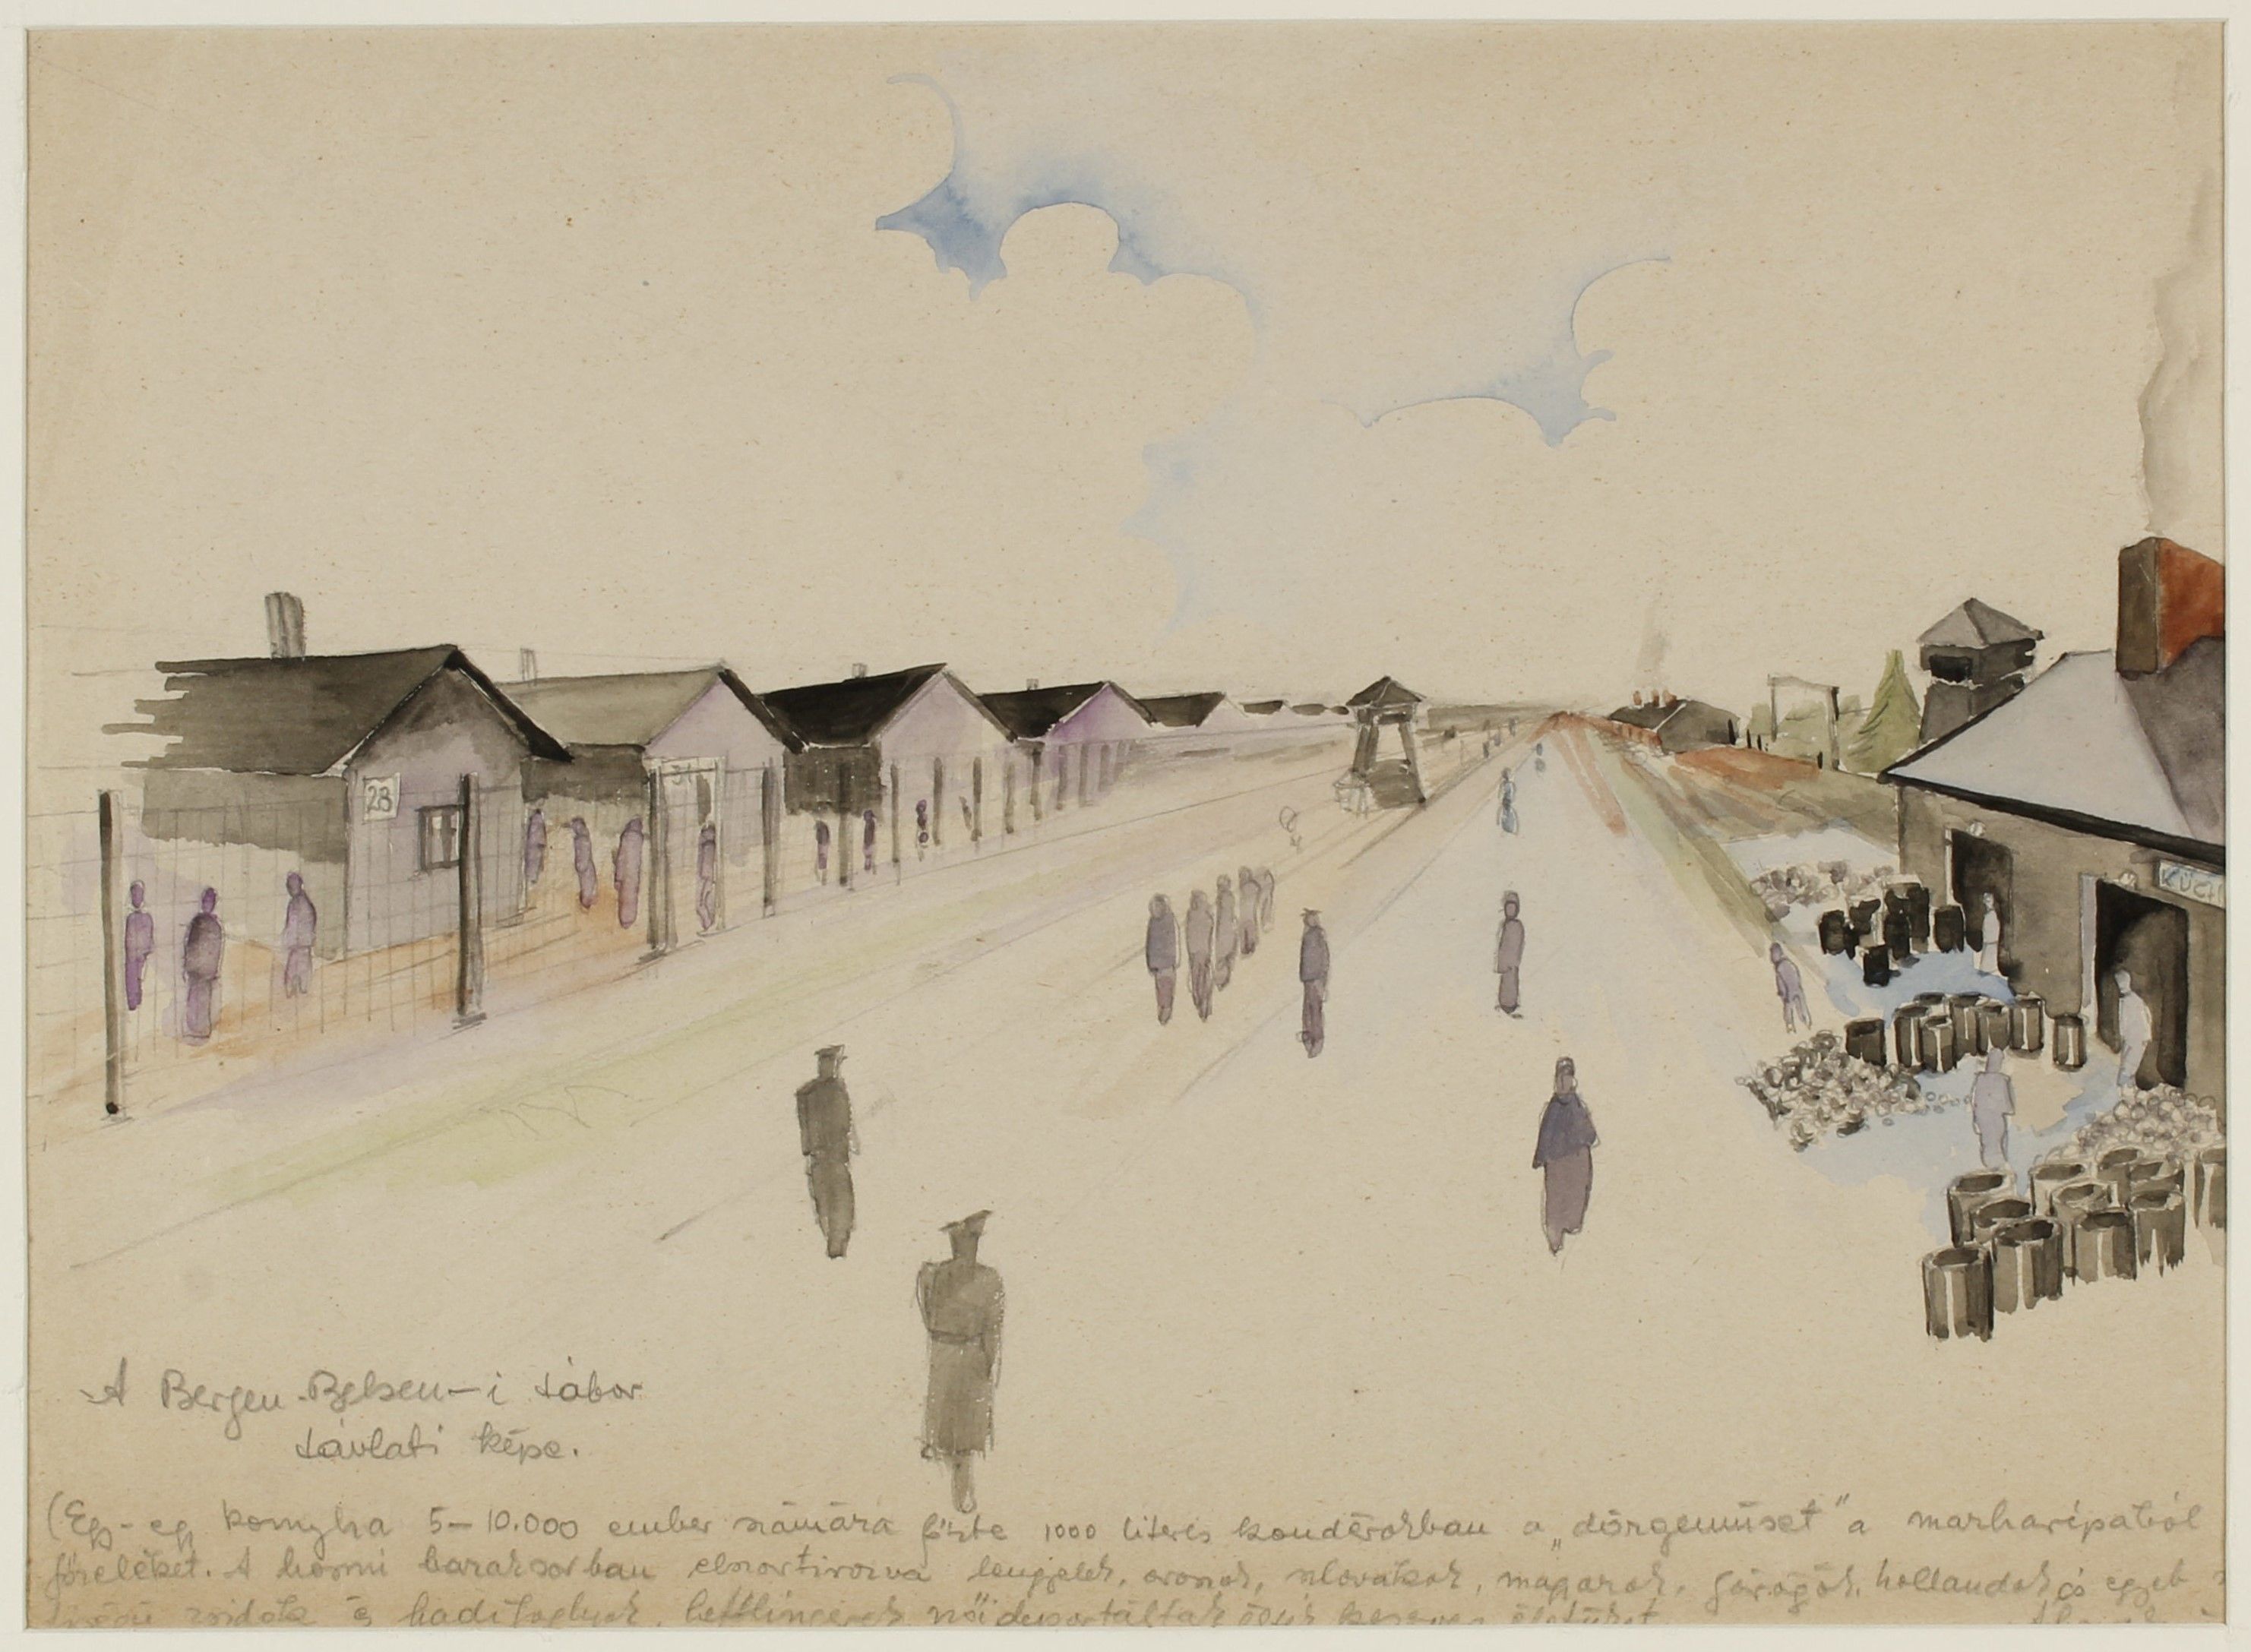 28
31
KÜCH
A Bergen-Belsen-i tábor
távlati képe.
(Egy-egy konyha 5–10.000 ember számára főzte 1000 literes kondérokban a „dörgemüset" a marharépából
főzeléket. A hosszú baraksorban elszortirozva lengyelek, oroszok, szlovákok, magyarok, görögök, hollandok és egyéb
zsidók és hadifoglyok, häftlingerek női deportáltak élik keserves életüket.